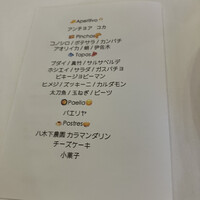 Aperitivo
アンチョア ユカ
Pinchos
コノシロ / ダテサラ / カンパチ
アオリイカ / 鯛 / 伊佐木
Tapas
ブダイ / 真竹 / サルサベルデ
ホシエイ / サラダ / ガスパチョ
ピキージョピーマン
ヒメジ / ズッキーニ / カルダモン
太刀魚 / 玉ねぎ / ビーツ
Paella
パエリヤ
Postres
八木下農園 カラマンダリン
チーズケーキ
小菓子